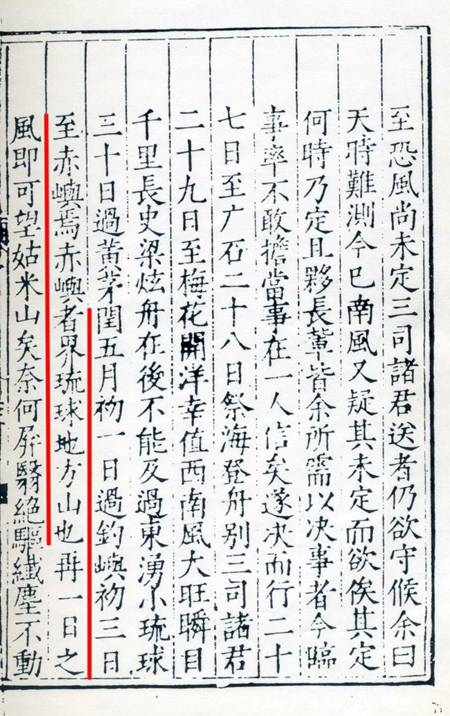 至恐風尚未定三司諸君送者仍欲守候余曰
天時難測今巳南風又疑其未定而欲俟其定
何時乃定且夥長軰皆余所需以决事者今臨
事率不敢擔當事在一人信矣遂决而行二十
七日至广石二十八日祭海登舟别三司諸君
二十九日至梅花開洋幸值西南風大旺瞬目
千里長史梁炫舟在後不能及過東湧小琉球
三十日過黃茅閏五月初一日過釣嶼初三日
至赤嶼焉赤嶼者界琉球地方山也再一日之
風即可望姑米山矣奈何屏翳絕驅纎塵不動